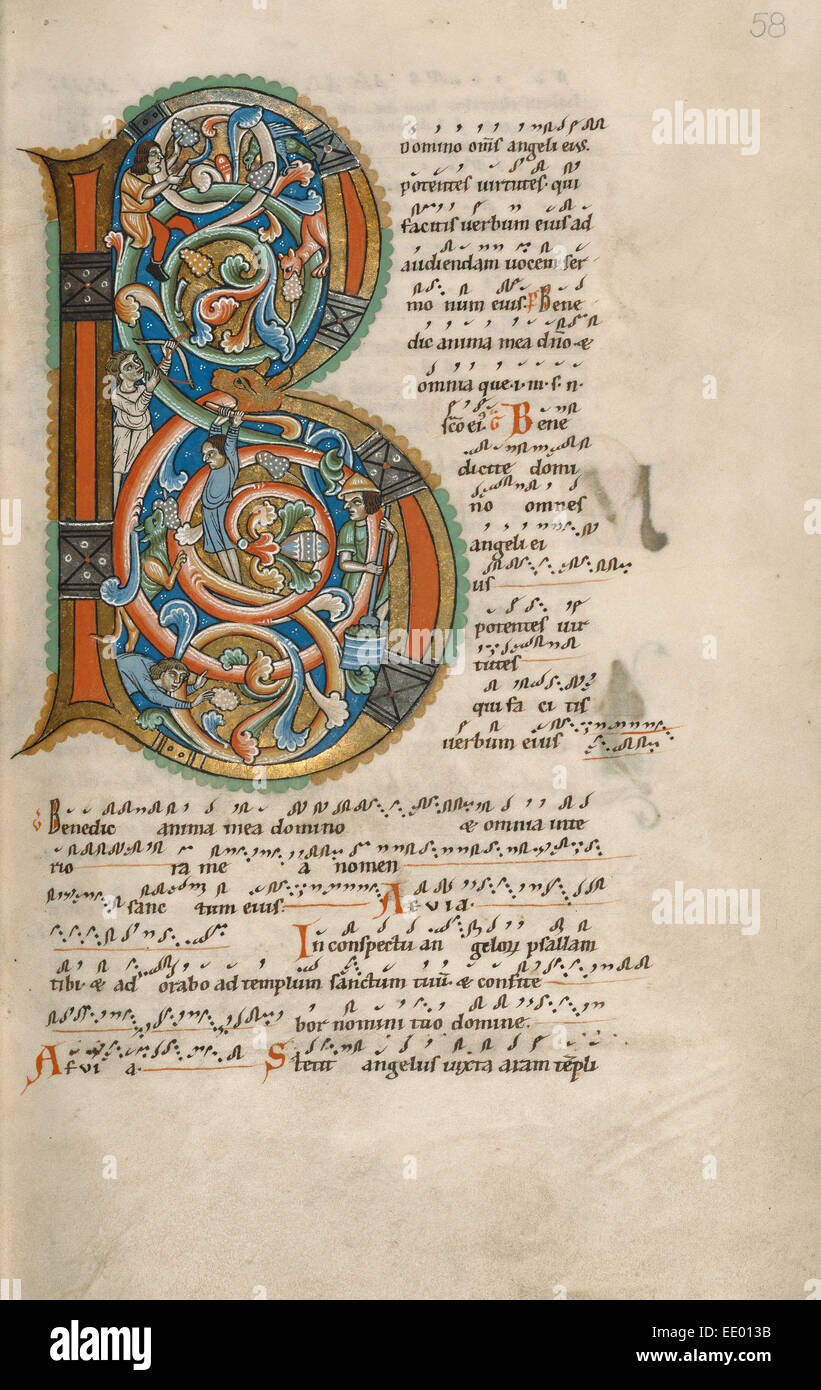 58
B
Domino om̄s angeli eius.
potentes uirtutes. qui
facitis uerbum eius ad
audiendam uocem ser
mo num eius. P Bene
dic anima mea dn̄o &
omnia que.i.m.s.n.
sc̄o ei'. G Bene
dicite domi
no omnes
angeli ei
us
potentes uir
tutes
qui fa ci tis
uerbum eius
G Benedic anima mea domino & omnia inte
rio ra me a nomen
sanc tum eius. Aevia.
In conspectu an gelorꝝ psallam
tibi & ad orabo ad templum sanctum tuū. & confite
bor nomini tuo domine.
Aevi a. Stetit angelus iuxta aram tēpli
alamy
Image ID: EE013B
www.alamy.com